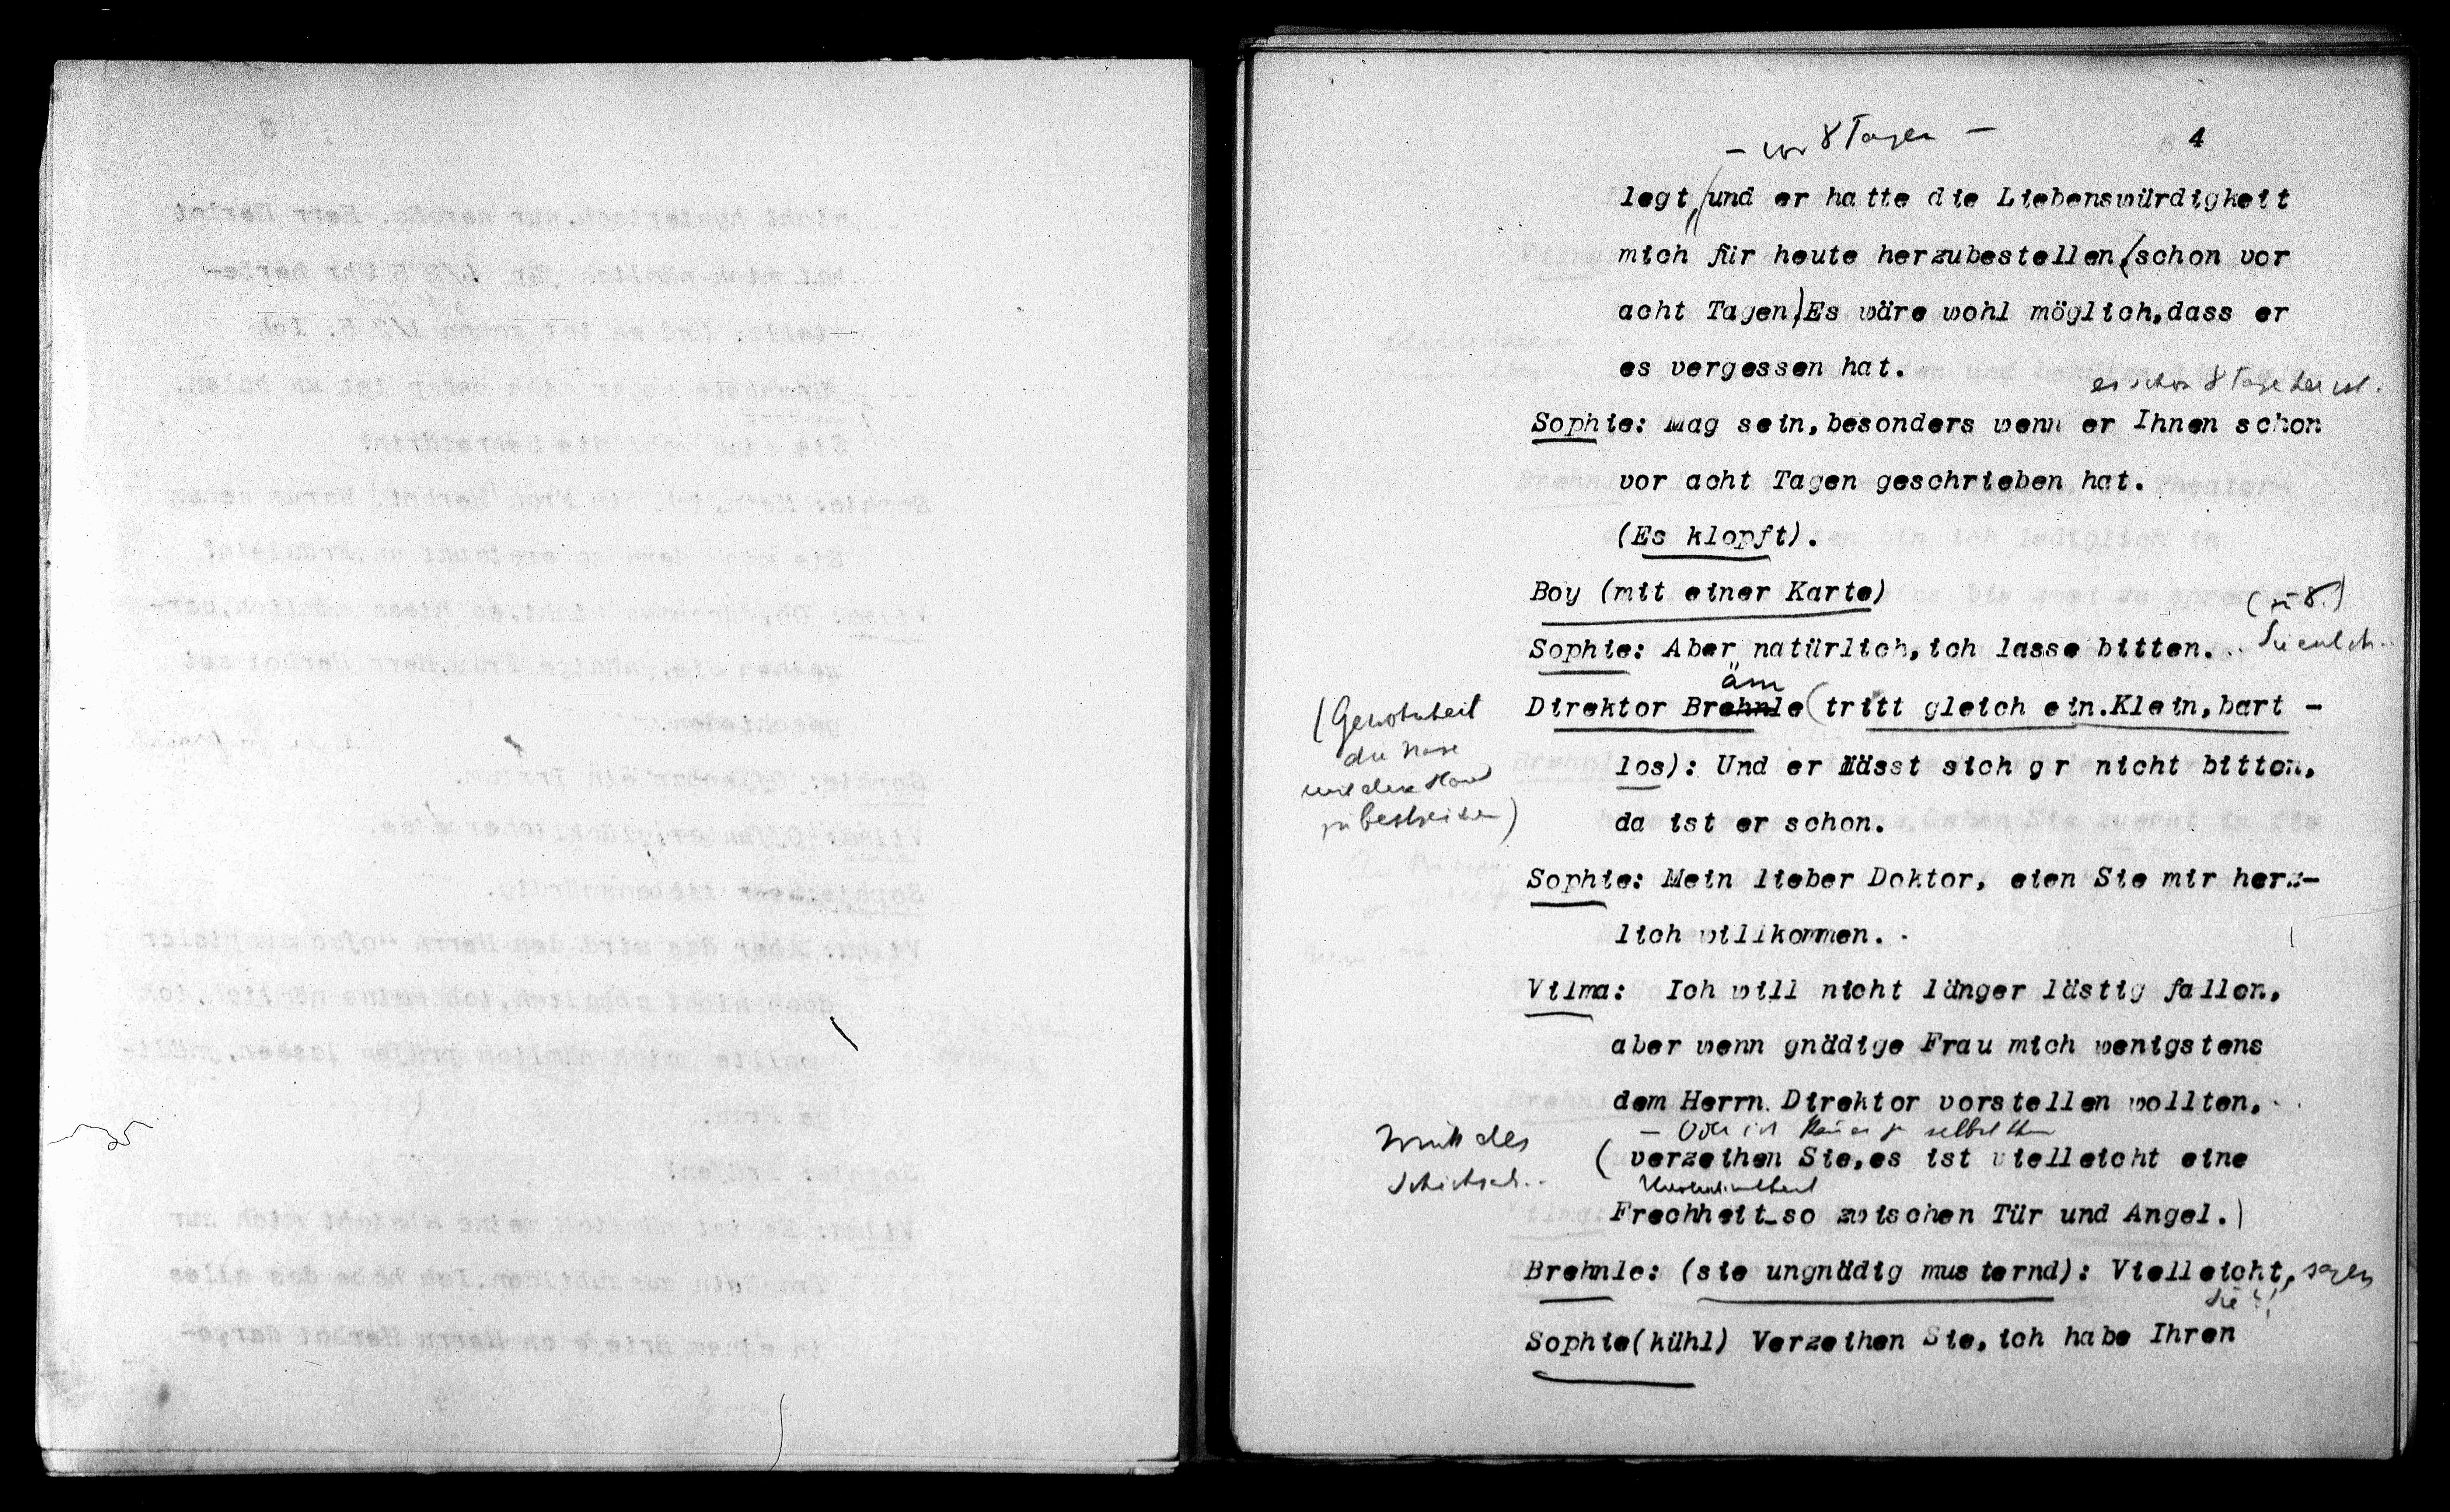 – vor 8 Tagen –
4
legt, (und er hatte die Liebenswürdigkeit
mich für heute herzubestellen,(schon vor
acht Tagen) Es wäre wohl möglich,dass er
es vergessen hat.
es schon 8 Tage her ist.
Sophie: Mag sein,besonders wenn er Ihnen schon
vor acht Tagen geschrieben hat.
(Es klopft).
Boy (mit einer Karte)
Sophie: Aber natürlich,ich lasse bitten. ..
äm
Direktor Brehnle (tritt gleich ein.Klein,bart -
los): Und er lässt sich g r nicht bitten,
da ist er schon.
(Gewohnheit
die Nase
mit der Hand
zu bestreichen)
Sophie: Mein lieber Doktor, eien Sie mir herz-
lich willkommen. .
Vilma: Ich will nicht länger lästig fallen,
aber wenn gnädige Frau mich wenigstens
dem Herrn Direktor vorstellen wollten,
– Oder ich selbst
( verzeihen Sie,es ist vielleicht eine
Frechheit so zwischen Tür und Angel.)
des
Schicksal..
Brehnle: (sie ungnädig musternd): Vielleicht, sagen
Sie ?!
Sophie(kühl) Verzeihen Sie,ich habe Ihren